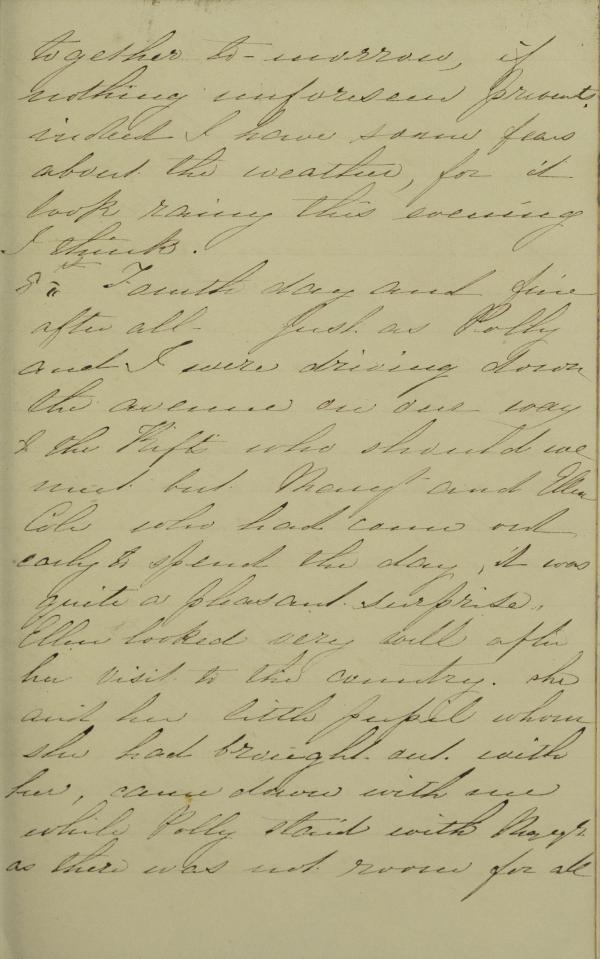 together to-morrow, if
nothing unforeseen prevents.
indeed I have some fears
about the weather, for it
look rainy this evening
I think.
5th Fourth day and fine
after all - Just as Polly
and I were driving down
the avenue on our way
to the Kift who should we
meet but Margt and Ellen
Cole who had come out
early to spend the day, it was
quite a pleasant surprise.
Ellen looked very well after
her visit to the country. she
and her little pupil whom
she had brought out with
her, came down with me
while Polly staid with Margt
as there was not room for all